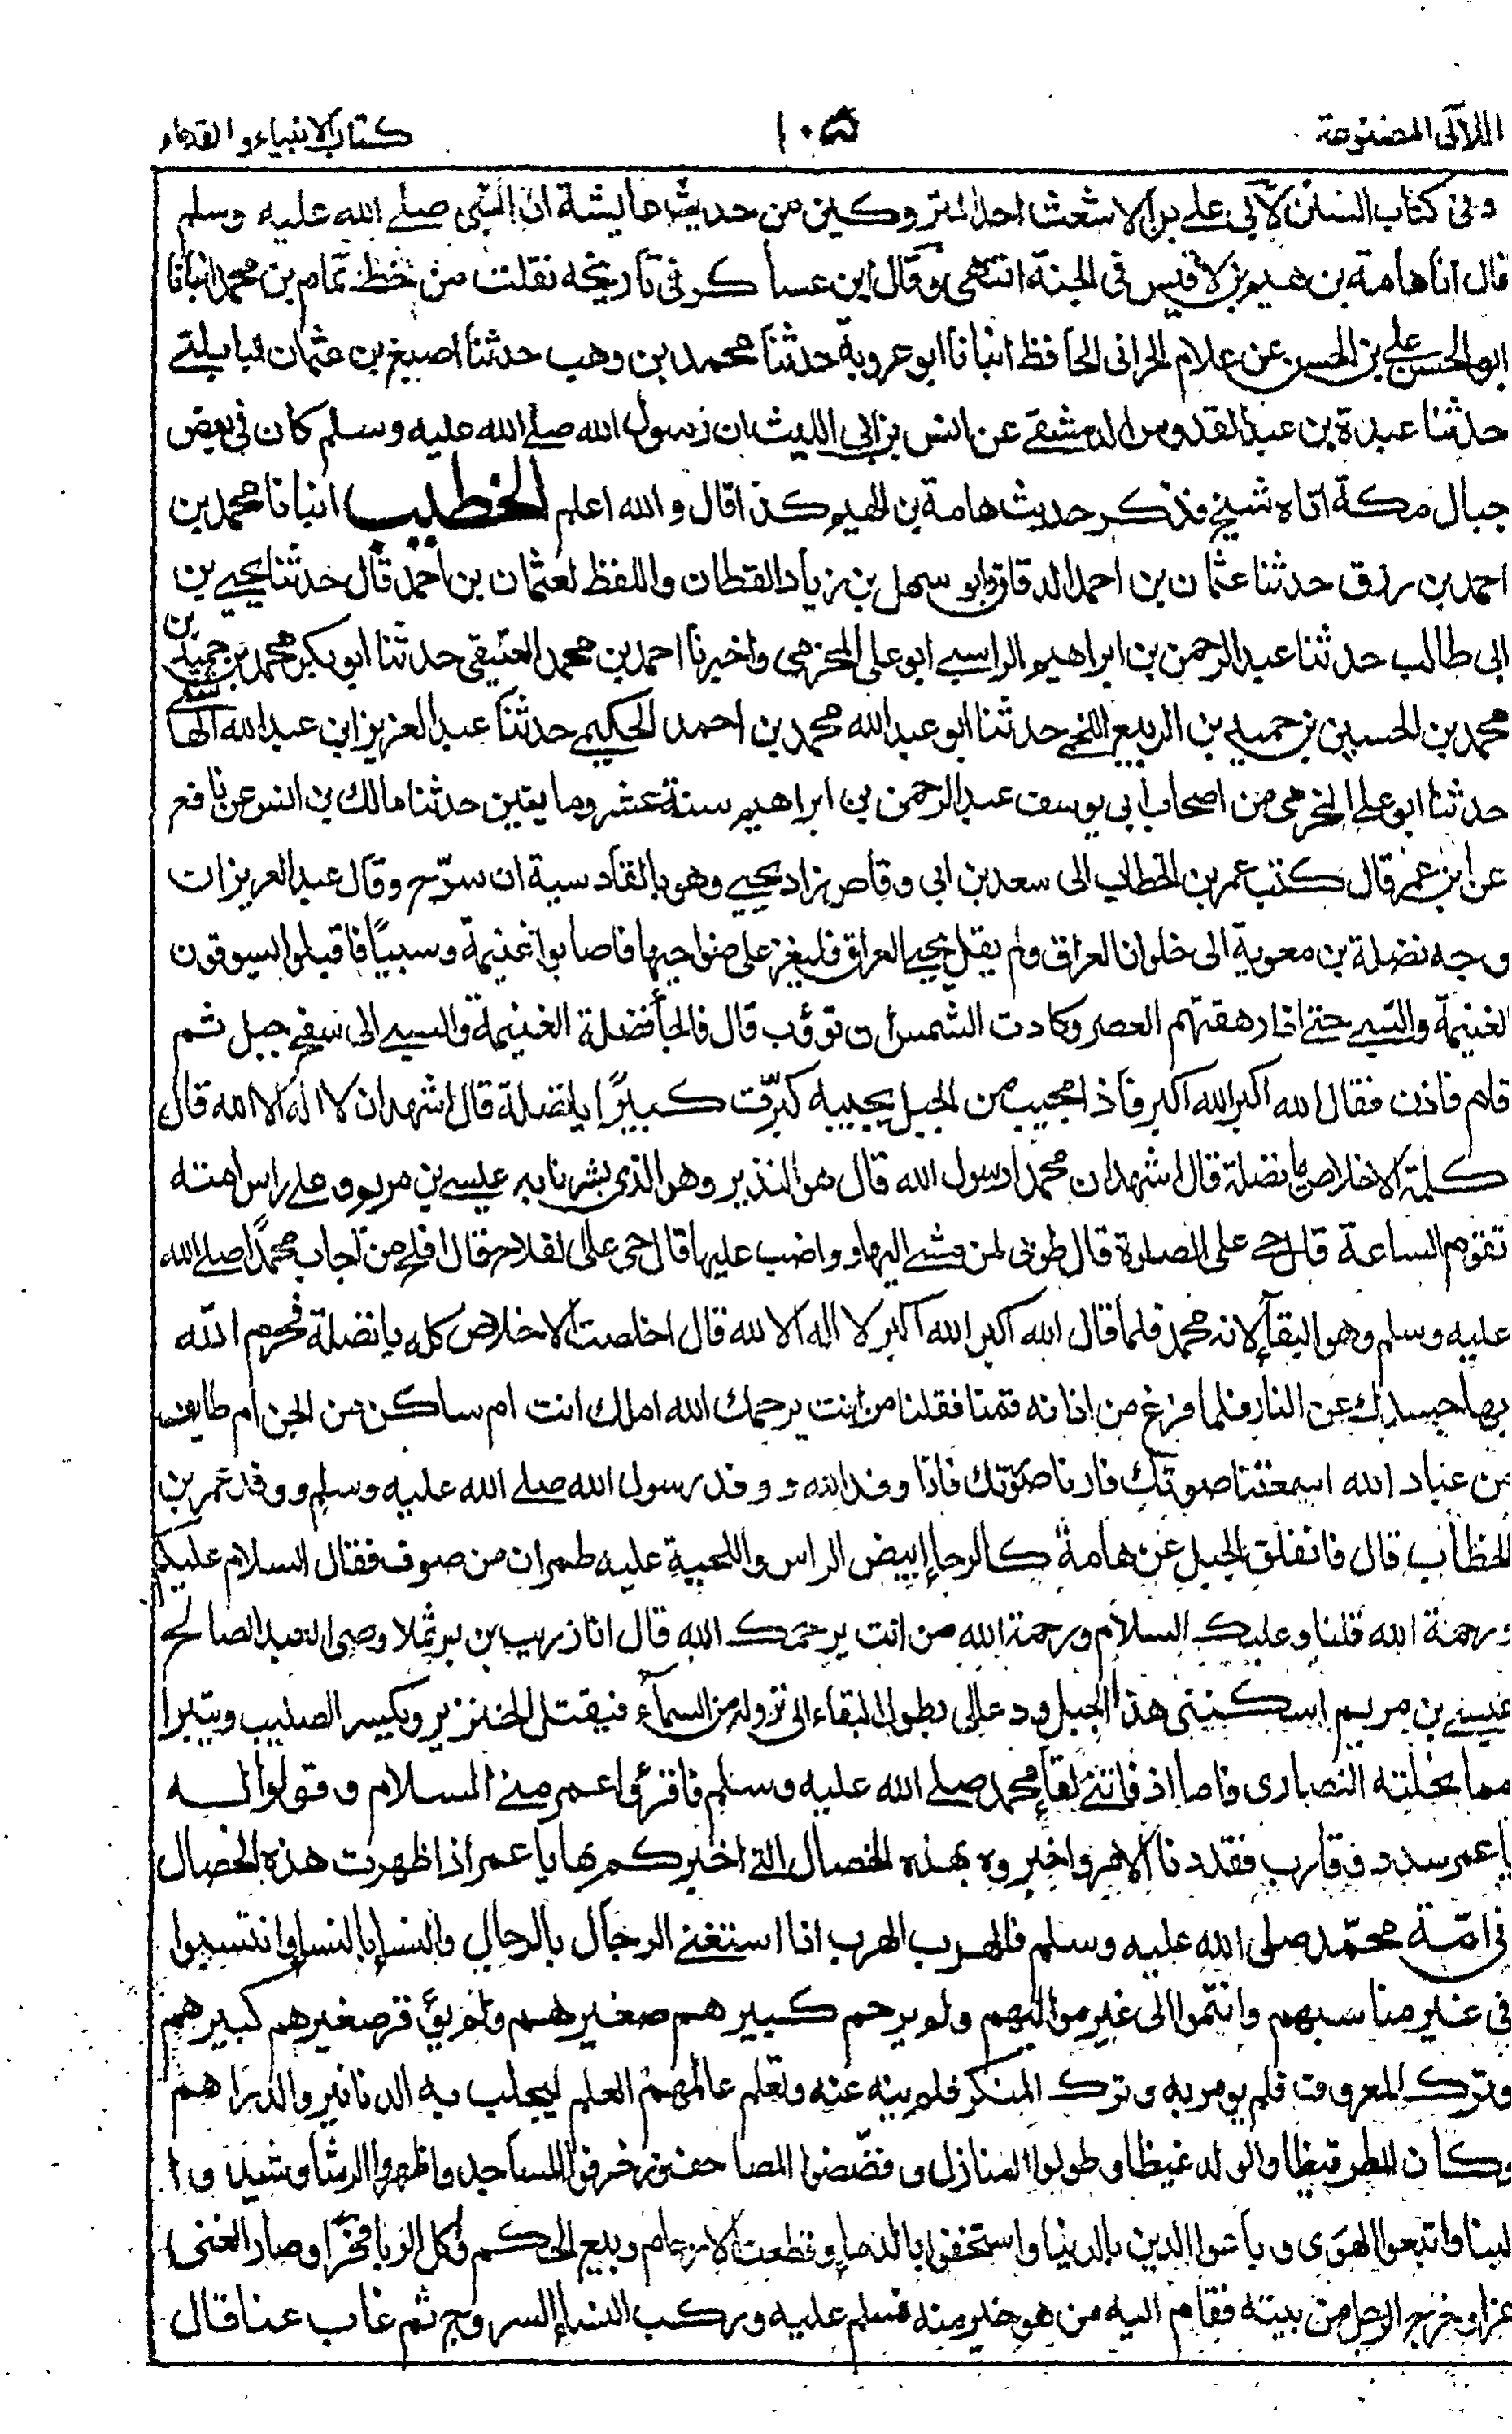 اللآلى المصنوعة
١٠٥
كتاب الانبياء والقدماء
وفى كتاب السنن لابى على بن الاشعث احد المتروكين من حديث عايشة ان النبى صلے الله عليه وسلم
قال انا هامة بن هيم بن لاقيس فى الجنة انتهى وقال ابن عساكر فى تاريخه نقلت من خط تمام بن محمد انبانا
ابو الحسن على بن الحسن عن علام الحرانى الحافظ انبانا ابو عروبة حدثنا محمد بن وهب حدثنا اصبغ بن عثمان البابلتے
حدثنا عبدة بن عبد القدوس الدمشقے عن انس بن ابى الليث ان رسول الله صلے الله عليه وسلم كان فى بعض
جبال مكة اتاه شيخ فذكر حديث هامة بن الهيم كذا قال والله اعلم الخطيب انبانا محمد بن
احمد بن رزق حدثنا عثمان بن احمد الدقاق وابو سهل بن زياد القطان واللفظ لعثمان بن احمد قال حدثنا يحيے بن
ابى طالب حدثنا عبد الرحمن بن ابراهيم الراسبے ابو على المخزمى واخبرنا احمد بن محمد العتيقى حدثنا ابو بكر محمد بن حميد بن
محمد بن الحسين بن حميد بن الربيع اللخمے حدثنا ابو عبد الله محمد بن احمد الحكيمے حدثنا عبد العزيز ابن عبد الله الهاشمى
حدثنا ابو على المخرمى من اصحاب ابى يوسف عبد الرحمن بن ابراهيم سنة عشر ومايتين حدثنا مالك بن انس عن نافع
عن ابن عمر قال كتب عمر بن الخطاب الى سعد بن ابى وقاص زاد يحيے وهو بالقادسية ان سرّح وقال عبد العزيز ان
وجه نضلة بن معوية الى حلوان العراق ولم يقل يحيے العراق فليغز على ضواحيها فاصابوا غنيمة وسبيًا فاقبلوا يسوقون
الغنيمة والسبے حتے اذا رهقتهم العصر وكادت الشمس ان تؤوب قال فالجأ نضلة الغنيمة والسبے الى سفح جبل ثم
قام فاذن فقال الله اكبر الله اكبر فاذا مجيب من الجبل يجيبه كبّرت كبيرًا يا نضلة قال اشهد ان لا اله الا الله قال
كلمة الاخلاص يا نضلة قال اشهد ان محمدا رسول الله قال هو النذير وهو الذى بشرنا به عيسے بن مريم وعلے راس امته
تقوم الساعة قال حے على الصلوة قال طوبى لمن مشے اليها وواضب عليها قال حى على الفلاح قال افلح من اجاب محمدًا صلے الله
عليه وسلم وهو البقاء لامة محمد فلما قال الله اكبر الله اكبر لا اله الا الله قال اخلصت الاخلاص كله يا نضلة فحرم الله
بها جسدك عن النار فلما فرغ من اذانه قمنا فقلنا من انت يرحمك الله املك انت ام ساكن من الجن ام طايف
من عباد الله اسمعتنا صوتك فارنا صورتك فانا وفد الله ووفد رسول الله صلے الله عليه وسلم ووفد عمر بن
الخطاب قال فانفلق الجبل عن هامة كالرحا ابيض الراس واللحية عليه طمران من صوف فقال السلام عليكم
ورحمة الله قلنا وعليك السلام ورحمة الله من انت يرحمك الله قال انا زريب بن برثملا وصى العبد الصالح
عيسے بن مريم اسكننى هذا الجبل ودعا لى بطول البقاء الى نزوله من السماء فيقتل الخنزير ويكسر الصليب ويتبرا
مما نحلته النصارى فاما اذ فاتنے لقاء محمد صلے الله عليه وسلم فاقرؤا عمر منے السلام وقولوا له
يا عمر سدد وقارب فقد دنا الامر واخبروه بهذه الخصال التے اخبركم بها يا عمر اذا ظهرت هذه الخصال
فى امّة محمّد صلى الله عليه وسلم فالهرب الهرب اذا استغنے الرجال بالرجال والنساء بالنساء وانتسبوا
فى غير مناسبهم وانتموا الى غير مواليهم ولم يرحم كبيرهم صغيرهم ولم يؤقر صغيرهم كبيرهم
وترك المعروف فلم يومر به وترك المنكر فلم ينه عنه وتعلم عالمهم العلم ليجلب به الدنانير والدراهم
وكان المطر قيظا والولد غيظا وطولوا المنازل وفضّضوا المصاحف وزخرفوا المساجد واظهروا الرشا وشيدوا
البنا واتبعوا الهوى وباعوا الدين بالدنيا واستخفوا بالدماء وقطعت الارحام وبيع الحكم واكل الربا فخرًا وصار الغنى
عزا وخرج الرجل من بيته فقام اليه من هو خير منه فسلم عليه وركب النساء السروج ثم غاب عنا قال